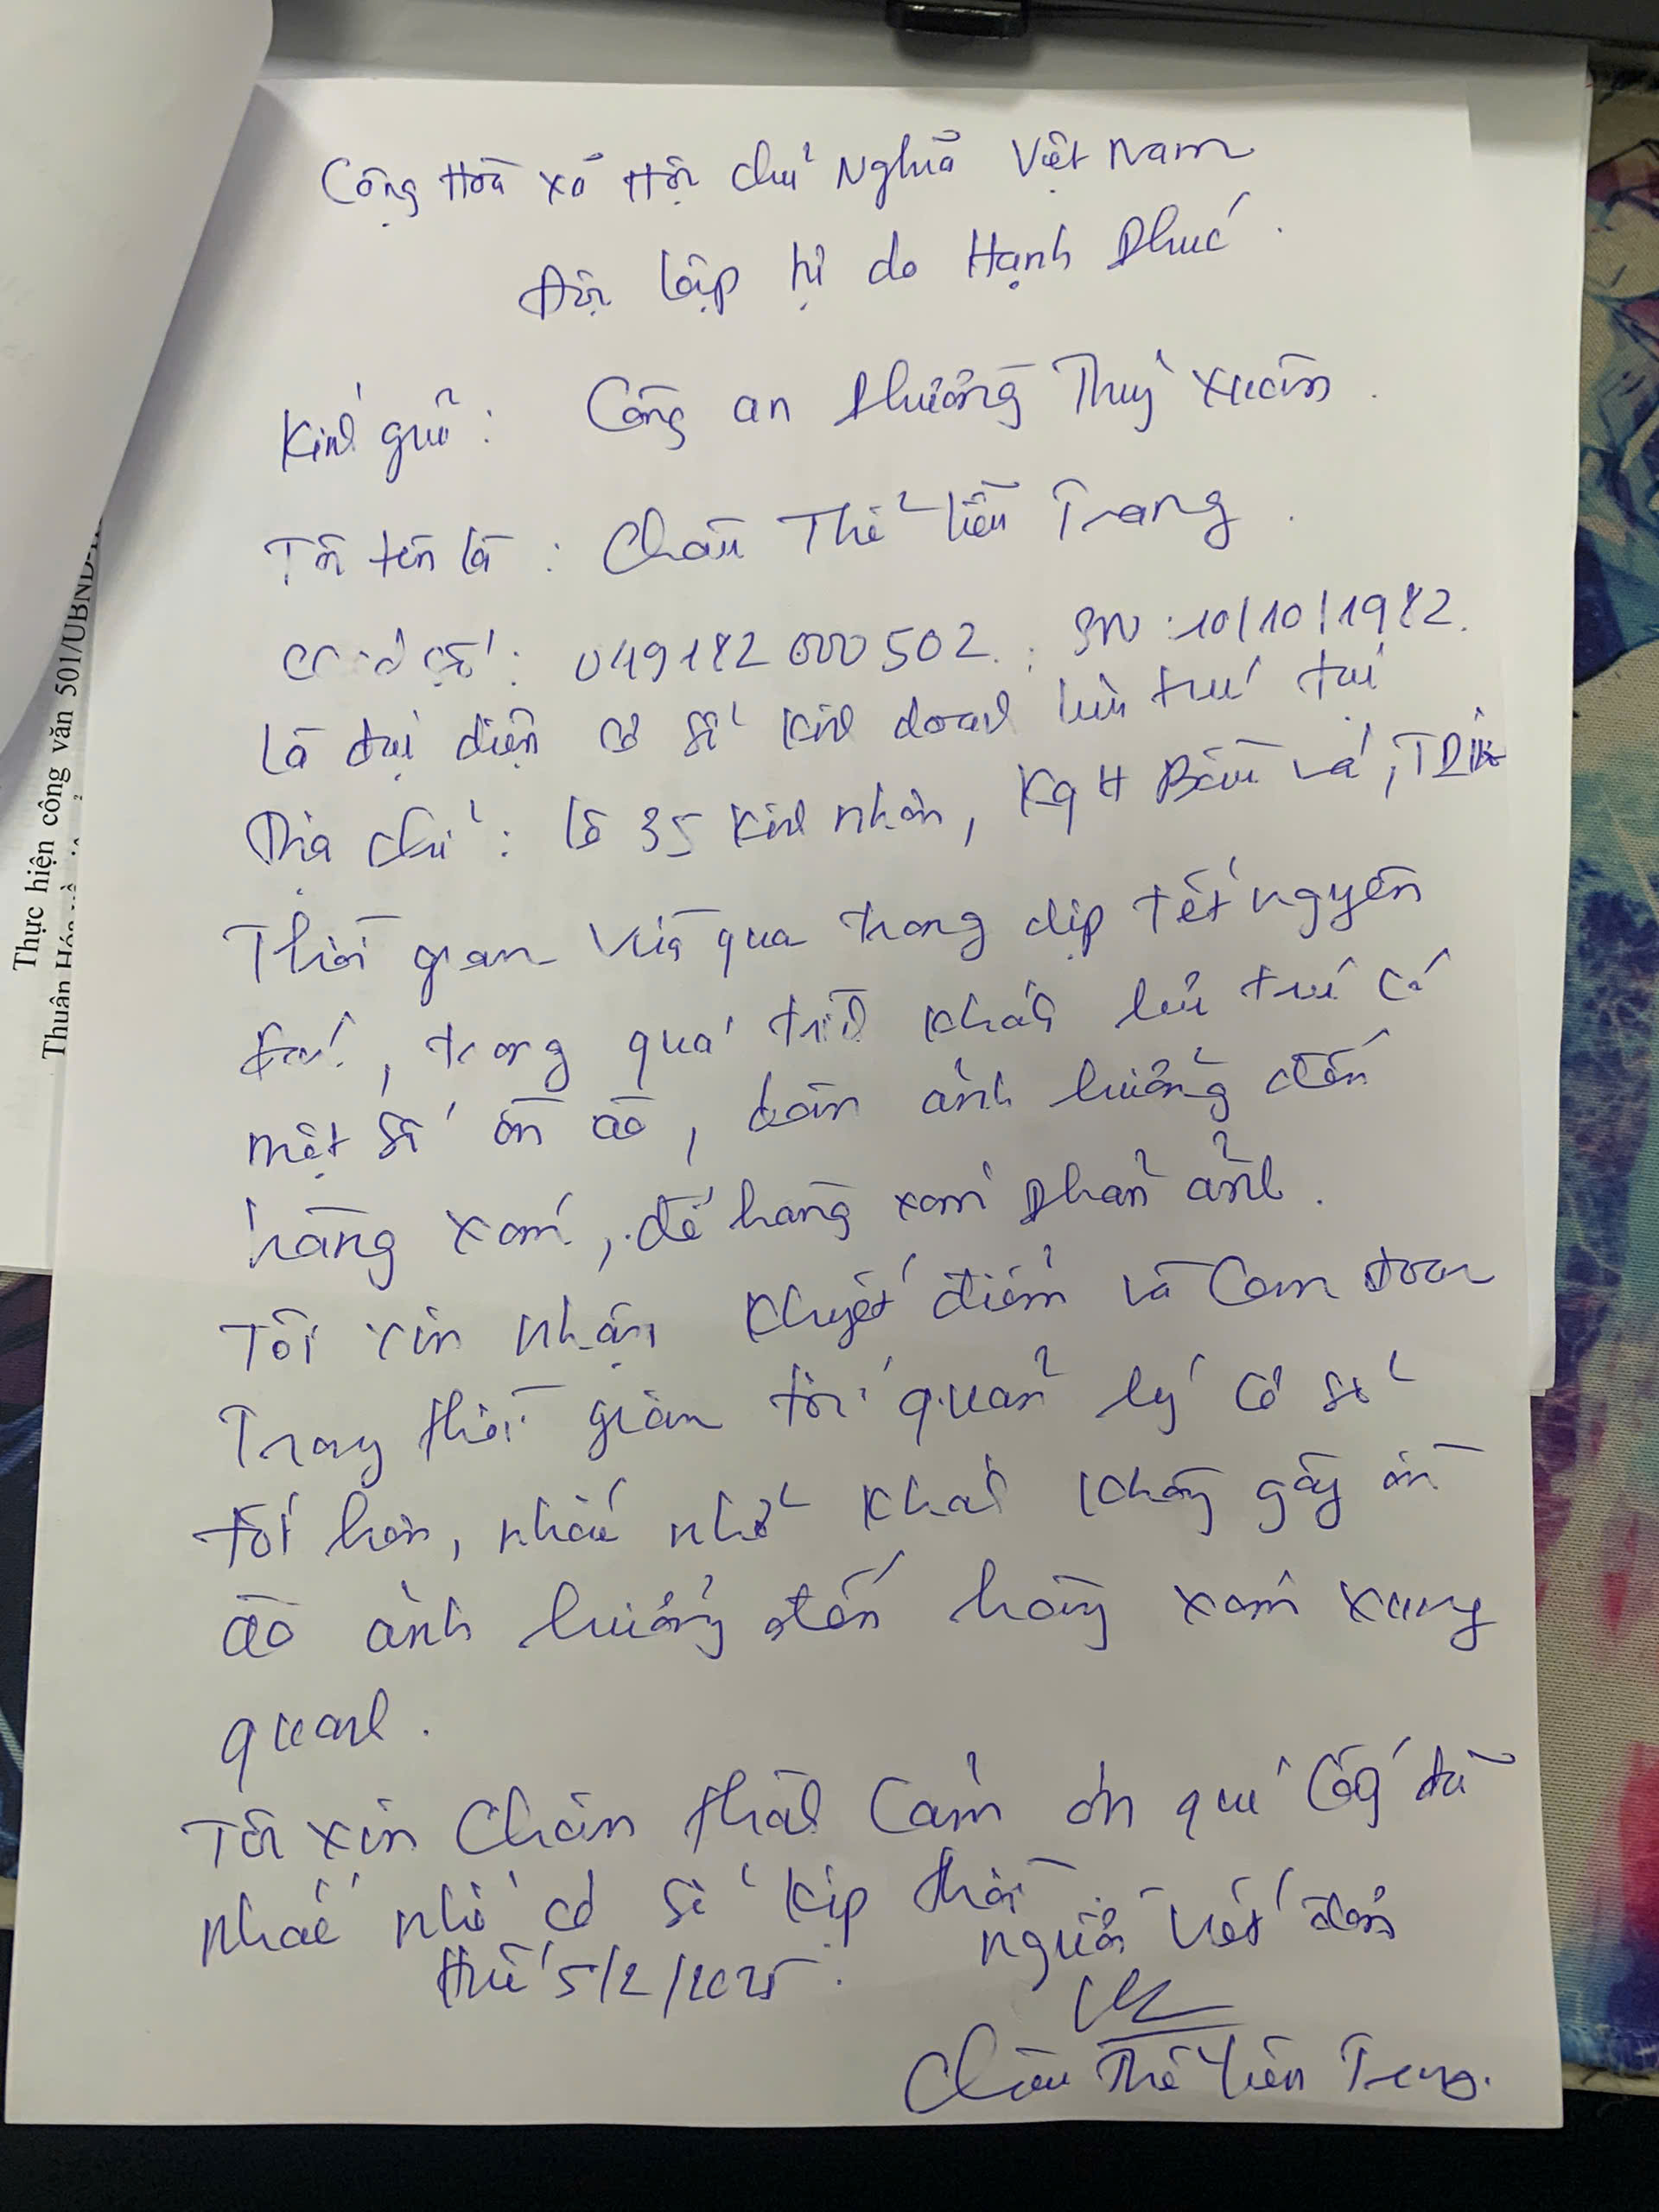 Cộng Hòa Xã Hội Chủ Nghĩa Việt Nam
Độc lập tự do Hạnh Phúc.
Kính gửi: Công an Phường Thuỷ Xuân.
Tôi tên là: Châu Thế Liễu Trang.
số: 049182000502.; SN: 10/10/1982.
Là đại diện cơ sở kinh doanh lưu trú tại
Địa chỉ: lô 35 Kim nhân, KQH Bàu Vá,
Thời gian vừa qua trong dịp tết nguyên
đán, trong quá trình khách lưu trú có
một số ồn ào, làm ảnh hưởng đến
hàng xóm, để hàng xóm phản ánh.
Tôi xin nhận khuyết điểm và Cam đoan
Trong thời gian tới quản lý cơ sở
tốt hơn, nhắc nhở khách không gây ồn
ào ảnh hưởng đến hàng xóm xung
quanh.
Tôi xin Chân thành Cảm ơn quí đã
nhắc nhở cơ sở kịp thời
Huế 5/2/2025. người viết đơn
Châu Thế Liễu Trang.
Thực hiện công văn 501/UBND-
Thuận Hóa